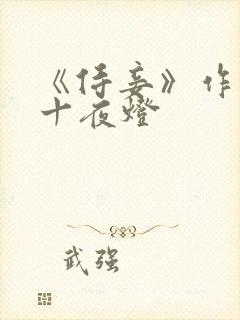 《侍妾》作
十夜燈
武强